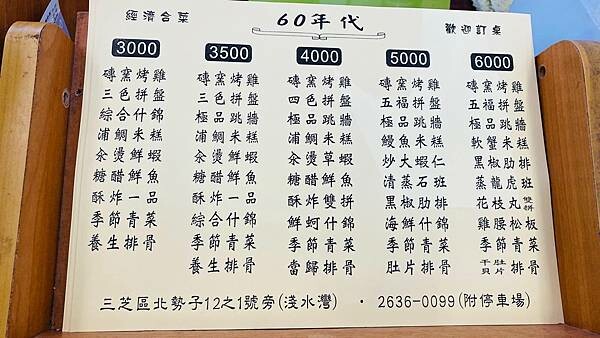 經濟合菜
60年代
歡迎訂桌
3000
磚窯烤雞
三色拼盤
綜合什錦
浦鯛米糕
汆燙鮮蝦
糖醋鮮魚
酥炸一品
季節青菜
養生排骨
3500
磚窯烤雞
三色拼盤
極品跳牆
浦鯛米糕
汆燙鮮蝦
糖醋鮮魚
酥炸一品
綜合什錦
季節青菜
養生排骨
4000
磚窯烤雞
四色拼盤
極品跳牆
浦鯛米糕
汆燙草蝦
糖醋鮮魚
酥炸雙拼
鮮蚵什錦
季節青菜
當歸排骨
5000
磚窯烤雞
五福拼盤
極品跳牆
鰻魚米糕
炒大蝦仁
清蒸石斑
黑椒肋排
海鮮什錦
季節青菜
肚片排骨
6000
磚窯烤雞
五福拼盤
極品跳牆
軟蟹米糕
黑椒肋排
蒸龍虎斑
花枝丸雙拼
雞腰松板
季節青菜
干貝肚片排骨
三芝區北勢子12之1號旁(淺水灣) ・ 2636-0099(附停車場)